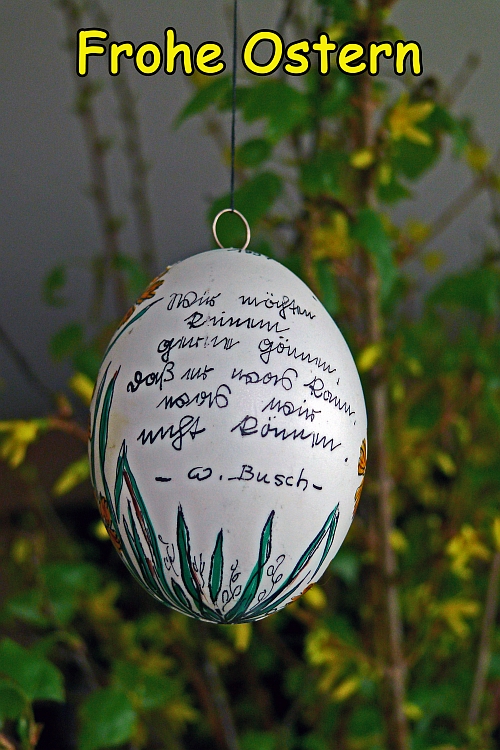 Frohe Ostern
Wir möchten
keinem
gerne gönnen,
daß er was kann,
was wir
nicht können.
- W. Busch -